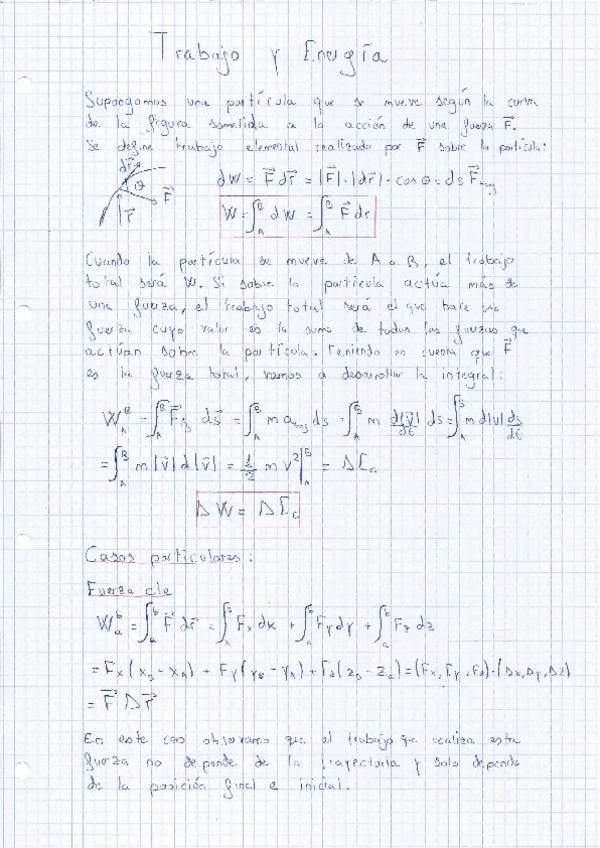 Trabajo y Energía
Supongamos una partícula que se mueve según la curva
de la figura sometida a la acción de una fuerza F⃗.
Se define trabajo elemental realizado por F⃗ sobre la partícula:
dr⃗ θ F⃗ r⃗
dW = F⃗ dr⃗ = |F⃗|·|dr⃗|·cos θ = ds F⃗tng
W = ∫_A^B dW = ∫_A^B F⃗ dr
Cuando la partícula se mueve de A a B, el trabajo
total será W. Si sobre la partícula actúa más de
una fuerza, el trabajo total será el que hace una
fuerza cuyo valor es la suma de todas las fuerzas que
actúan sobre la partícula. Teniendo en cuenta que F⃗
es la fuerza total, vamos a desarrollar la integral:
W_A^B = ∫_A^B F⃗tng ds⃗ = ∫_A^B m atng ds = ∫_A^B m d|v⃗|/dt ds = ∫_A^B m d|v| ds/dt
= ∫_A^B m |v⃗| d|v⃗| = 1/2 m v² |_A^B = ΔEc
ΔW = ΔEc
Casos particulares:
Fuerza cte
W_a^b = ∫_a^b F⃗ dr⃗ = ∫_a^b Fx dx + ∫_a^b Fy dy + ∫_a^b Fz dz
= Fx (xB - xA) + Fy (yB - yA) + Fz (zB - zA) = (Fx, Fy, Fz)·(Δx, Δy, Δz)
= F⃗ Δr⃗
En este caso observamos que el trabajo que realiza esta
fuerza no depende de la trayectoria y solo depende
de la posición final e inicial.